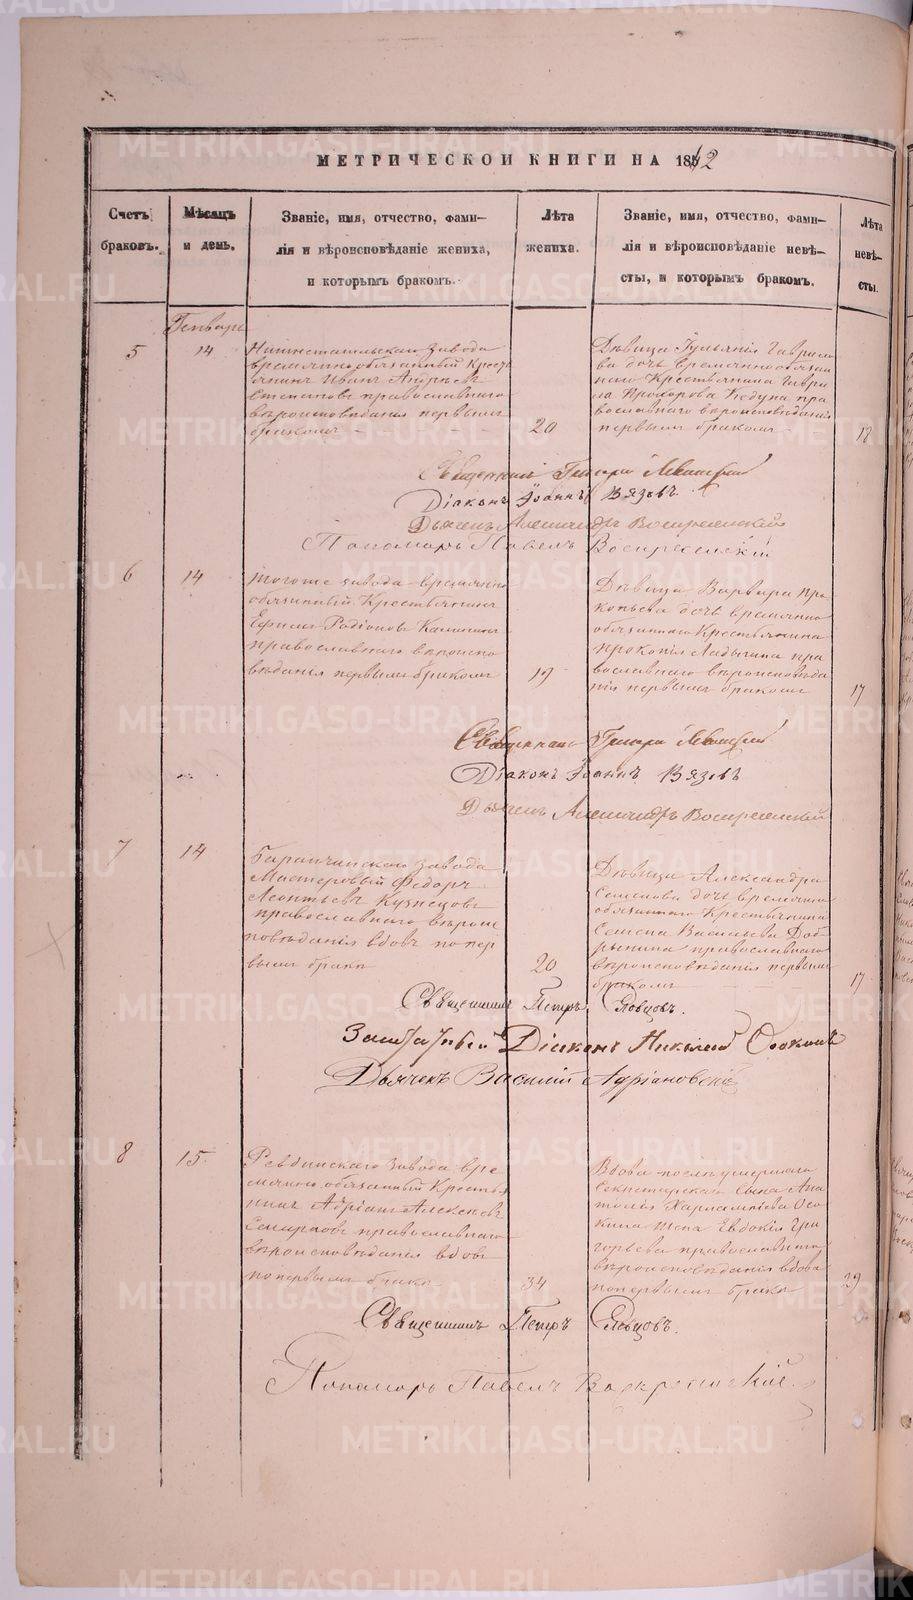 МЕТРИЧЕСКОЙ КНИГИ НА 1862
Счетъ
браковъ.
Мѣсяцъ
и день.
Званіе, имя, отчество, фами-
лія и вѣроисповѣданіе жениха,
и которымъ бракомъ.
Лѣта
жениха.
Званіе, имя, отчество, фами-
лія и вѣроисповѣданіе невѣ-
сты, и которымъ бракомъ.
Лѣта
невѣ-
сты.
Генварь
5
14
завода
временно обязанный Крест
янинъ Иванъ Андреевъ
Степановъ православнаго
вѣроисповѣданія первымъ
бракомъ
20
Дѣвица Гаврило
ва дочь временно обязан
наго Крестьянина Гаври
ла Прохорова пра
вославнаго вѣроисповѣданія
первымъ бракомъ
18
Священникъ Григорій Левитскій
Діаконъ Іоаннъ Вязовъ
Дьячекъ Александръ Воскресенскій
Пономарь Павелъ Воскресенскій
6
14
тогоже завода временно
обязанный Крестьянинъ
Ефимъ Родіоновъ
православнаго вѣроиспо
вѣданія первымъ бракомъ
19
Дѣвица Варвара Про
копьева дочь временно
обязаннаго Крестьянина
Прокопія Ладыгина пра
вославнаго вѣроисповѣда
нія первымъ бракомъ
17
Священникъ Григорій Левитскій
Діаконъ Іоаннъ Вязовъ
Дьячекъ Александръ Воскресенскій
7
14
Баранчинскаго завода
Мастеровый Федоръ
Леонтьевъ Кузнецовъ
православнаго вѣроис
повѣданія вдовъ по пер
вымъ бракѣ
20
Дѣвица Александра
Семенова дочь временно
обязаннаго Крестьянина
Семена Васильева Доб
рынина православнаго
вѣроисповѣданія первымъ
бракомъ
17
Священникъ Петръ Словцовъ.
Заштатный Діаконъ Николай
Дьячекъ Василій Адріановскій
8
15.
Ревдинскаго завода вре
менно обязанный Крестья
нинъ Адріанъ Алексеевъ
православнаго
вѣроисповѣданія вдовъ
по первымъ бракѣ
34
Вдова после умершаго
Секретарскаго Сына Ана
толія Харлампіева Осо
кина жена Евдокія Гри
горьева православнаго
вѣроисповѣданія вдова
по первымъ бракѣ
29
Священникъ Петръ Словцовъ.
Пономарь Павелъ Воскресенскій.
METRIKI.GASO-URAL.RU